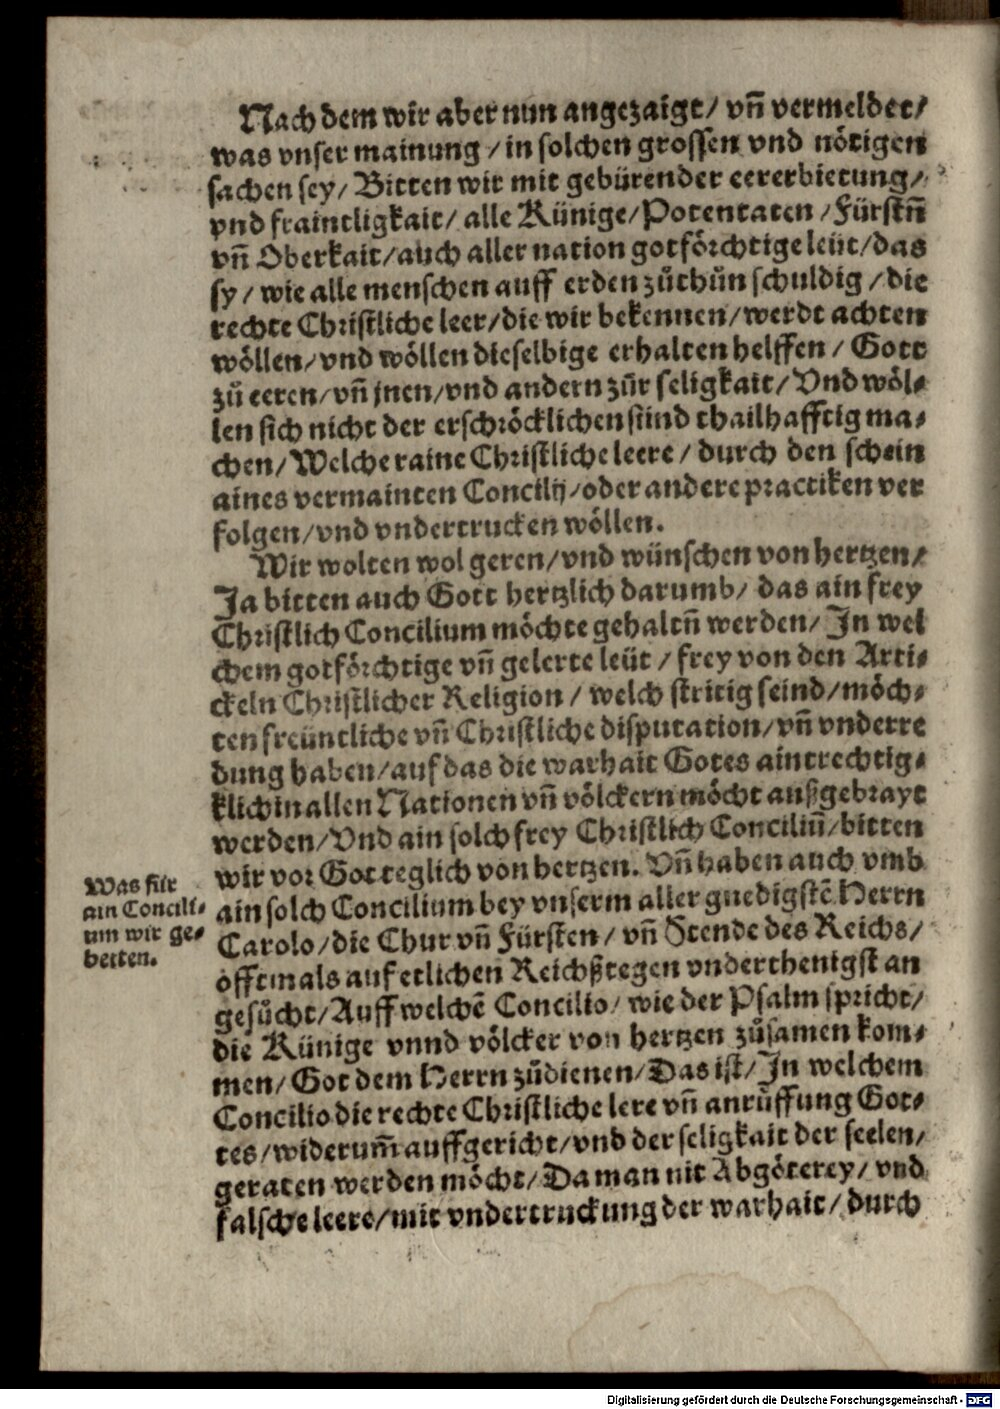 Nach dem wir aber nun angezaigt/ vñ vermeldet/
was vnser mainung /in solchen grossen vnd nötigen
sachen sey/ Bitten wir mit gebürender eererbietung/
vnd fraintligkait/ alle Künige/Potentaten /Fürstñ
vñ Oberkait/auch aller nation gotförchtige leüt/das
sy / wie alle menschen auff erden zůthůn schuldig /die
rechte Christliche leer/die wir bekennen/werdt achten
wöllen/vnd wöllen dieselbige erhalten helffen / Gott
zů eeren/vñ jnen/vnd andern zůr seligkait/ Vnd wöl-
len sich nicht der erschröcklichen sünd thailhafftig ma-
chen/Welche raine Christliche leere / durch den schein
aines vermainten Concilij/oder andere practiken ver
folgen/vnd vndertrucken wöllen.
Wir wolten wol geren/vnd wünschen von hertzen/
Ja bitten auch Gott hertzlich darumb/ das ain frey
Christlich Concilium möchte gehaltñ werden/ In wel
chem gotförchtige vñ gelerte leüt / frey von den Arti-
ckeln Christlicher Religion / welch stritig seind/möch-
ten freüntliche vñ Christliche disputation/vñ vnderre
dung haben/auf das die warhait Gotes aintrechtig-
klich in allen Nationen vñ völckern möcht außgebrayt
werden/Vnd ain solch frey Christlich Conciliũ/bitten
wir vor Got teglich von hertzen. Vñ haben auch vmb
ain solch Concilium bey vnserm aller gnedigstē Herrn
Carolo/die Chur vñ Fürsten / vñ Stende des Reichs/
offtmals auf etlichen Reichßtegen vnderthenigst an
gesůcht/Auff welchē Concilio/ wie der Psalm spricht/
die Künige vnnd völcker von hertzen zůsamen kom-
men/Got dem Herrn zůdienen/Das ist/In welchem
Concilio die rechte Christliche lere vñ anrůffung Got-
tes/widerum̃ auffgericht/vnd der seligkait der seelen/
geraten werden möcht/Da man nit Abgöterey/ vnd
falsche leere/mit vndertruckung der warhait/ durch
Was für
ain Concili-
um wir ge-
betten.
Digitalisierung gefördert durch die Deutsche Forschungsgemeinschaft - DFG